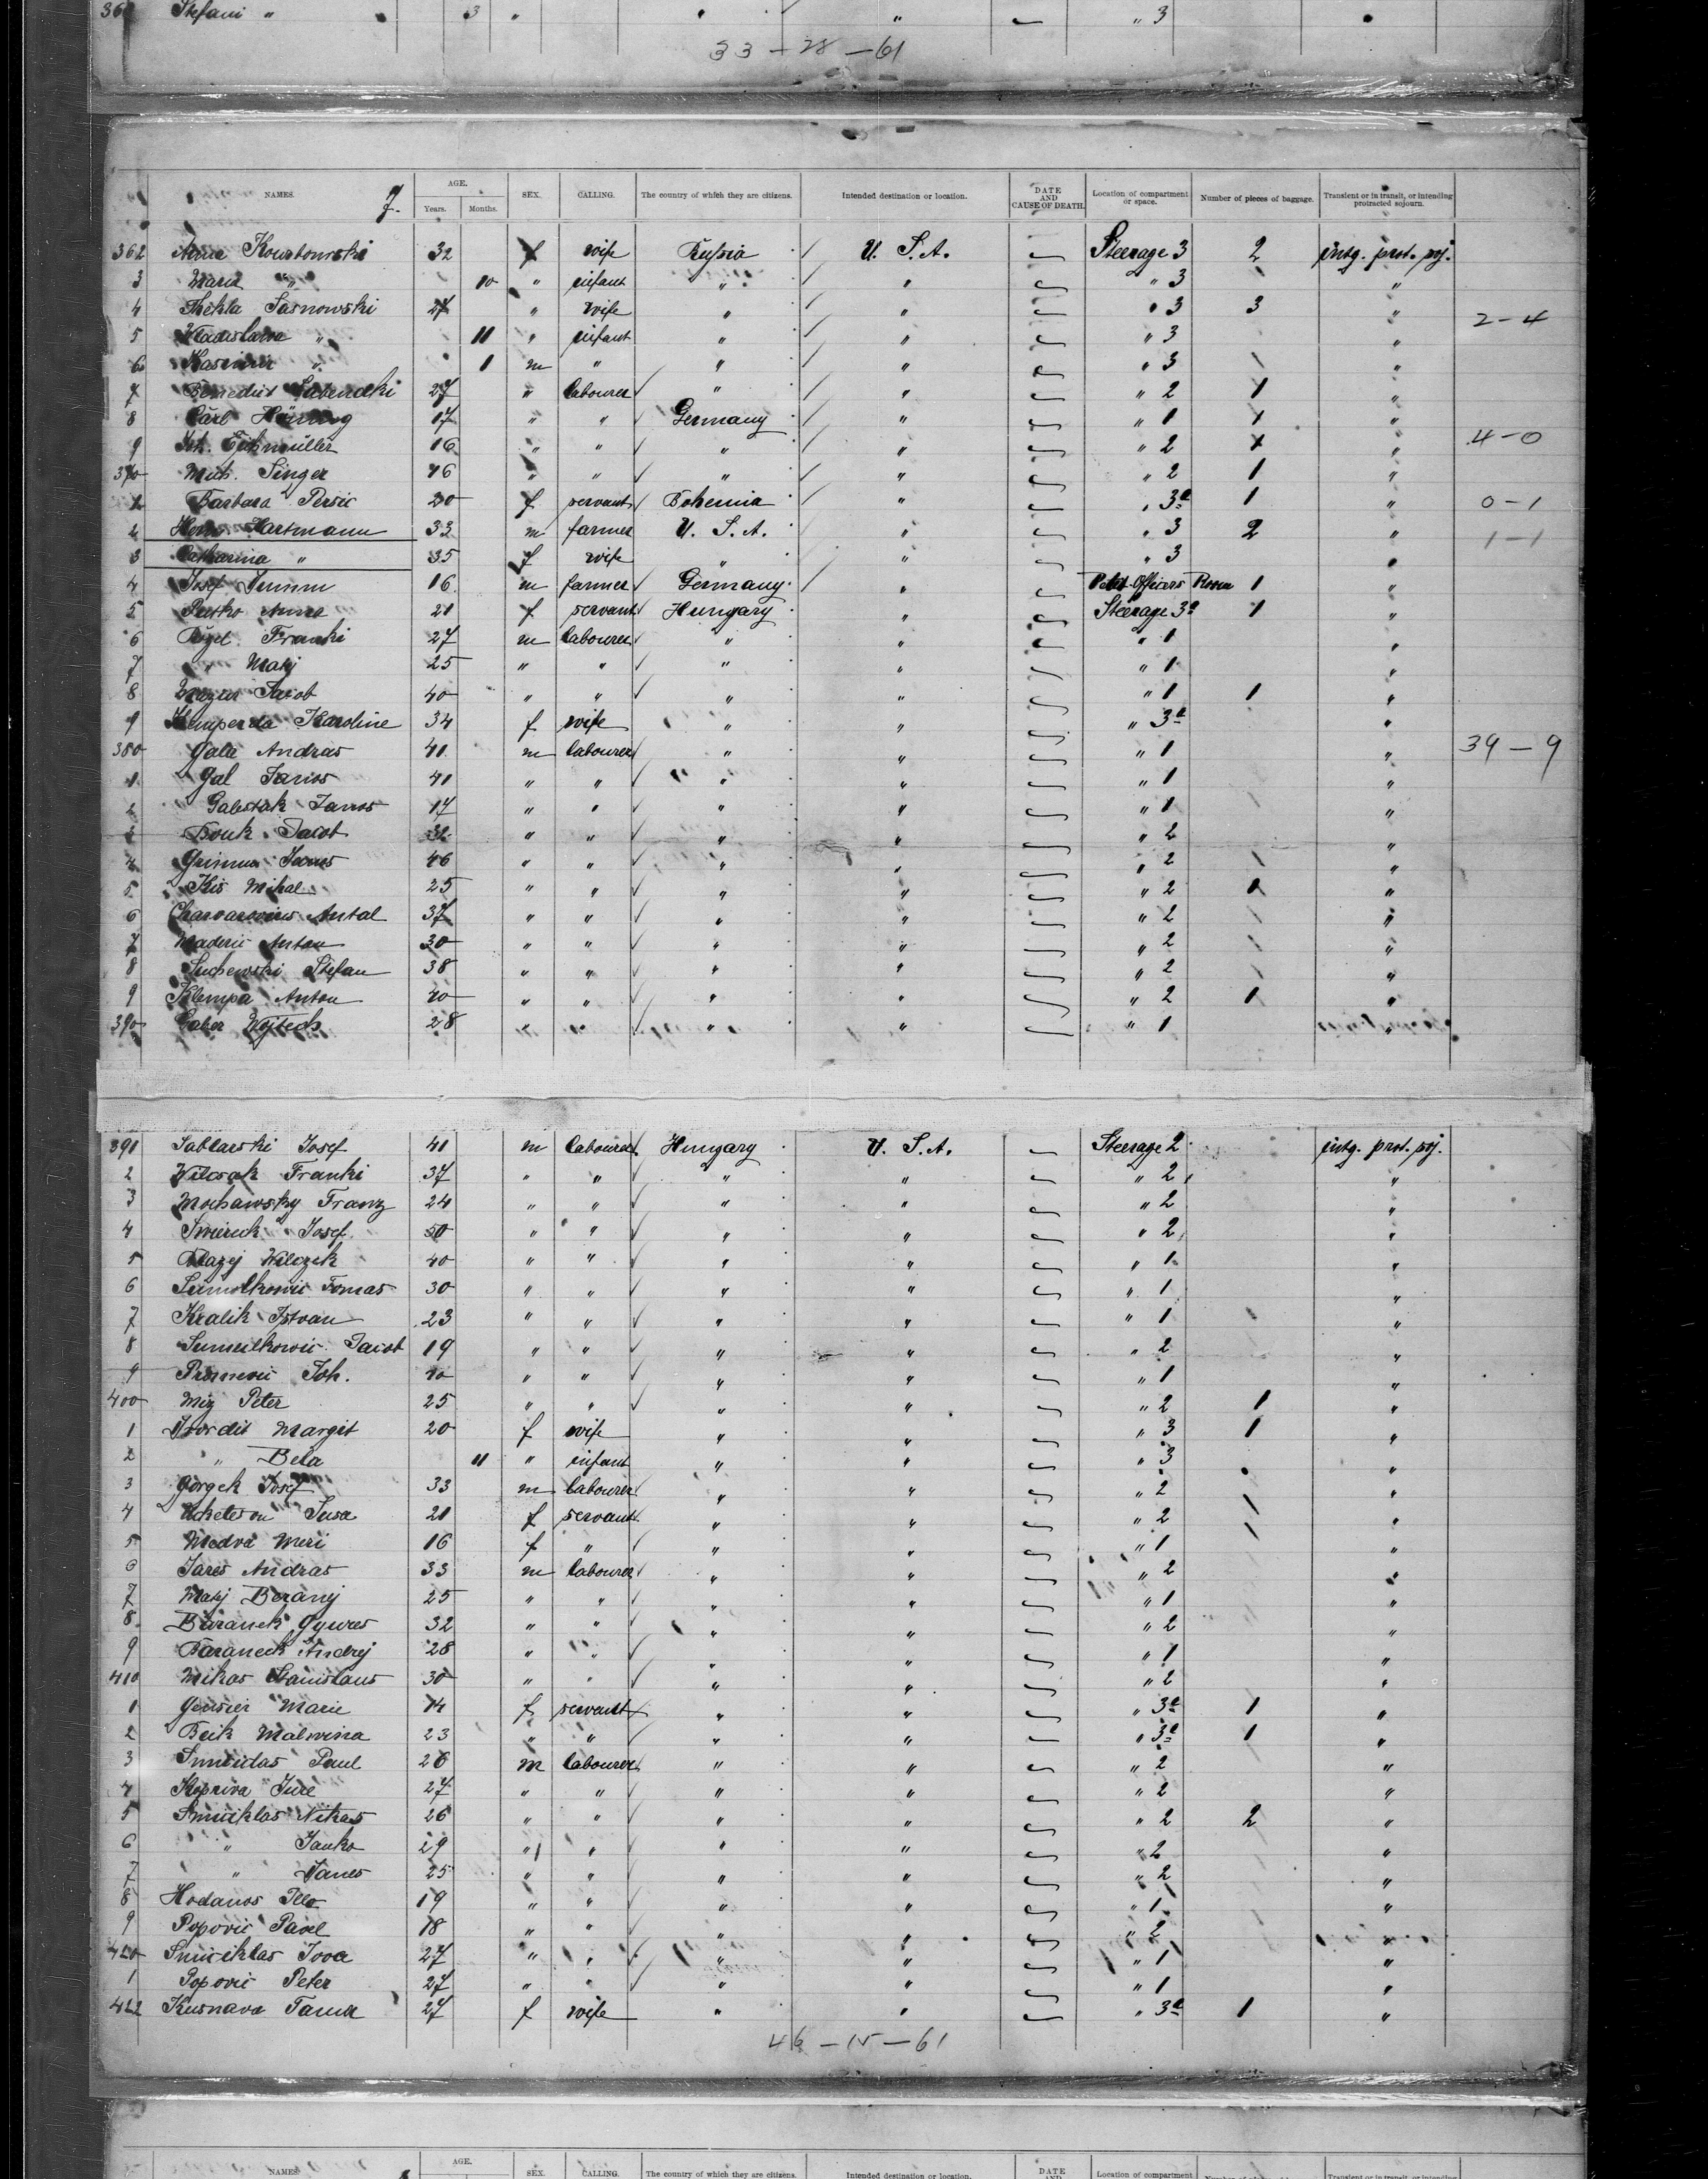 Stefani " 3 " " " " 3
33 - 28 - 61
NAMES. 7. AGE. Years. Months. SEX. CALLING. The country of which they are citizens. Intended destination or location. DATE AND CAUSE OF DEATH. Location of compartment or space. Number of pieces of baggage. Transient or in transit, or intending protracted sojourn.
362 Anna 32 f wife Russia U. S. A. Steerage 3 2 intg. prot. soj.
3 Maria " 10 " infant " " " 3 "
4 Thekla Sasnowski 27 " wife " " " 3 3 " 2-4
5 Wladislawa " 11 " infant " " " 3 "
6 Kasimir " 1 m " " " " 3 "
7 Benedict 27 " labourer " " " 2 1 "
8 Carl 17 " " Germany " " 1 1 "
9 Joh. Eichmüller 16 " " " " " 2 1 " 4-0
370 Mich. Singer 46 " " " " " 2 1 "
1 Barbara Persic 20 f servant Bohemia " " 3a 1 " 0-1
2 Herm. Hartmann 33 m farmer U. S. A. " " 3 2 " 1-1
3 Catharina " 35 f wife " " " 3 "
4 Josef 16 m farmer Germany " Officers Room 1 "
5 Anna 21 f servant Hungary " Steerage 3a 1 "
6 Franki 27 m labourer " " " 1 "
7 " Matij 25 " " " " " 1 "
8 Mazur Jacob 40 " " " " " 1 1 "
9 Karoline 34 f wife " " " 3a "
380 Gala Andras 41 m labourer " " " 1 " 39-9
1 Gal Janos 41 " " " " " 1 "
2 Galestik Janos 17 " " " " " 1 "
3 Bouk Jacob 32 " " " " " 2 "
4 Janos 46 " " " " " 2 "
5 Kis Mihal 25 " " " " " 2 "
6 Antal 37 " " " " " 2 "
7 Maderic Anton 30 " " " " " 2 "
8 Stefan 38 " " " " " 2 "
9 Klempa Anton 40 " " " " " 2 1 "
390 Gabor Wojtech 28 " " " " " 1 "
391 Jablanski Josef 41 m labourer Hungary U. S. A. Steerage 2 intg. prot. soj.
2 Wilcsak Franki 37 " " " " " 2 "
3 Mochawsky Franz 24 " " " " " 2 "
4 Josef 50 " " " " " 2 "
5 Blazej Wilczek 40 " " " " " 1 "
6 Tomas 30 " " " " " 1 "
7 Kralik Istvan 23 " " " " " 1 "
8 Jacob 19 " " " " " 2 "
9 Joh. 40 " " " " " 1 "
400 Miz Peter 25 " " " " " 2 1 "
1 Margit 20 f wife " " " 3 1 "
2 " Bela 11 " infant " " " 3 "
3 Görgek Josef 33 m labourer " " " 2 "
4 Susa 21 f servant " " " 2 "
5 Medva Meri 16 f " " " " 1 "
6 Jares Andras 33 m labourer " " " 2 "
7 Matij Beranij 25 " " " " " 1 "
8 Baranek Gyures 32 " " " " " 2 "
9 Baranek Andrej 28 " " " " " 1 "
410 Mikas Stanislaus 30 " " " " " 2 "
1 Marie 14 f servant " " " 3a 1 "
2 Beik Malwina 23 " " " " " 3a 1 "
3 Paul 26 m labourer " " " 2 "
4 Kopriva Jure 27 " " " " " 2 "
5 Smiciklas Nikas 26 " " " " " 2 2 "
6 " Janko 29 " " " " " 2 "
7 " Janes 25 " " " " " 2 "
8 Hodanos Illo 19 " " " " " 1 "
9 Popovic Pavel 18 " " " " " 2 "
420 Smiciklas Jova 27 " " " " " 1 "
1 Popovic Peter 27 " " " " " 1 "
422 Kusnava 27 f wife " " " 3a 1 "
46 - 15 - 61
NAMES. AGE. SEX. CALLING. The country of which they are citizens. Intended destination or location. DATE AND Location of compartment Number of pieces of baggage. Transient or in transit, or intending